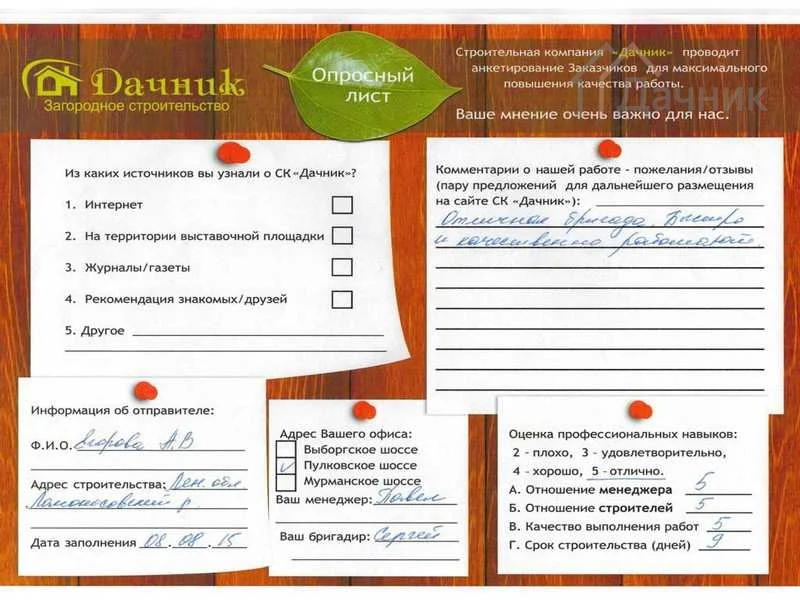 Дачник
Загородное строительство
Опросный
лист
Строительная компания «Дачник» проводит
анкетирование Заказчиков для максимального
повышения качества работы.
Ваше мнение очень важно для нас.
Дачник
Из каких источников вы узнали о СК «Дачник»?
1. Интернет
2. На территории выставочной площадки
3. Журналы/газеты
4. Рекомендация знакомых/друзей
5. Другое
Комментарии о нашей работе - пожелания/отзывы
(пару предложений для дальнейшего размещения
на сайте СК «Дачник»):
Отличная бригада. Быстро
и качественно работают.
Информация об отправителе:
Ф.И.О. Егорова А.В
Адрес строительства: Лен. обл
Ломоносовский р.
Дата заполнения 08.08.15
Адрес Вашего офиса:
Выборгское шоссе
Пулковское шоссе
Мурманское шоссе
Ваш менеджер: Павел
Ваш бригадир: Сергей
Оценка профессиональных навыков:
2 - плохо, 3 - удовлетворительно,
4 - хорошо, 5 - отлично.
А. Отношение менеджера 5
Б. Отношение строителей 5
В. Качество выполнения работ 5
Г. Срок строительства (дней) 9